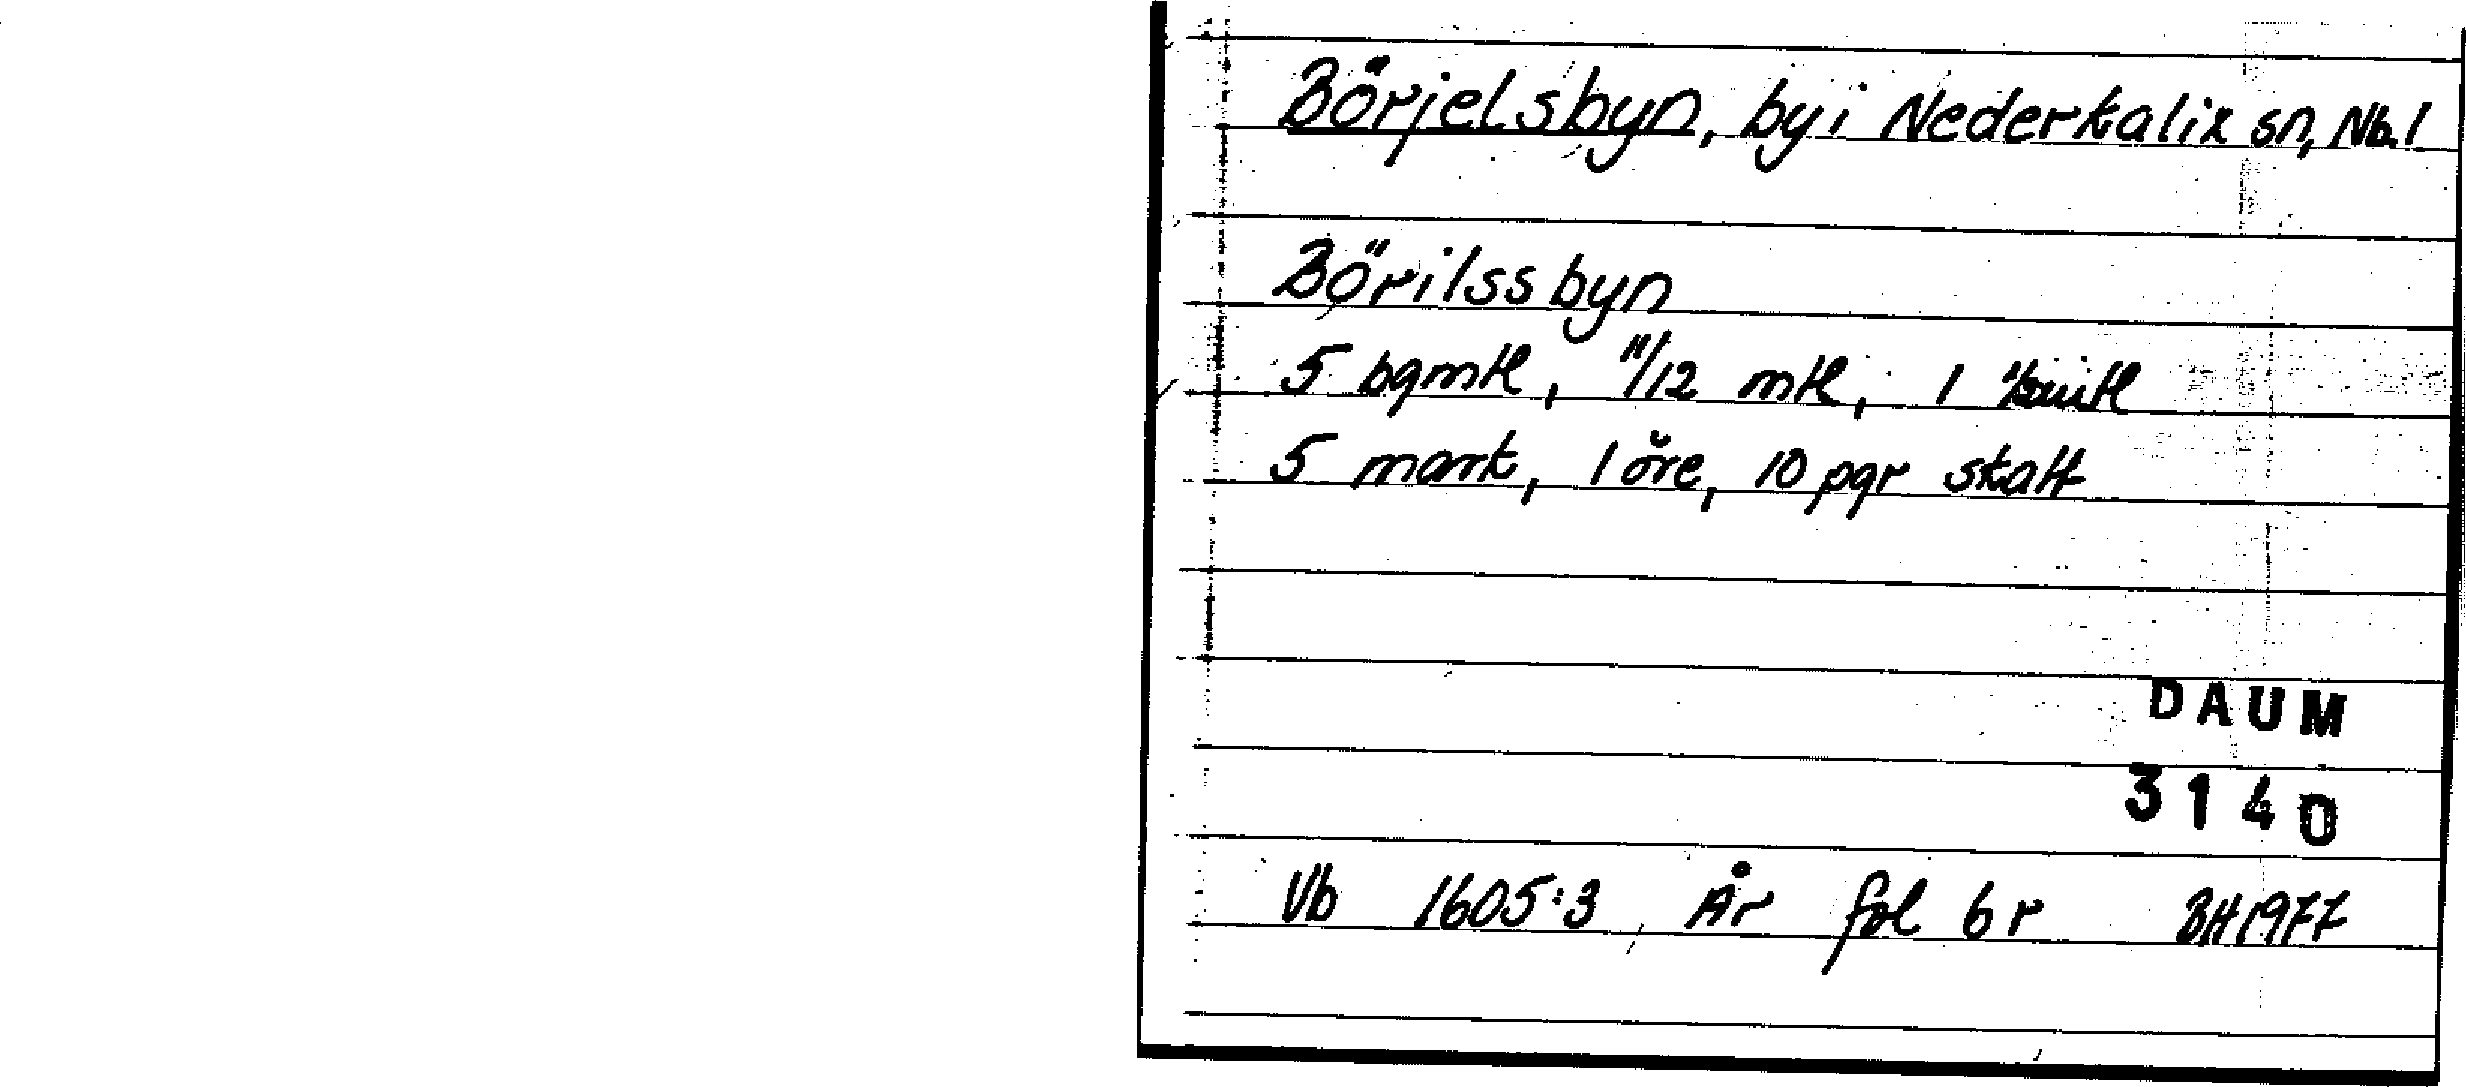 Börjelsbyn, by i Nederkalix sn, Nb. l
Börilssbyn
5 bgmtl, 11/12 mtl, 1
5 mark, 1 öre, 10 pgr skatt
DAUM
3140
Vb 1605:3 År fol 6 r BH 1977